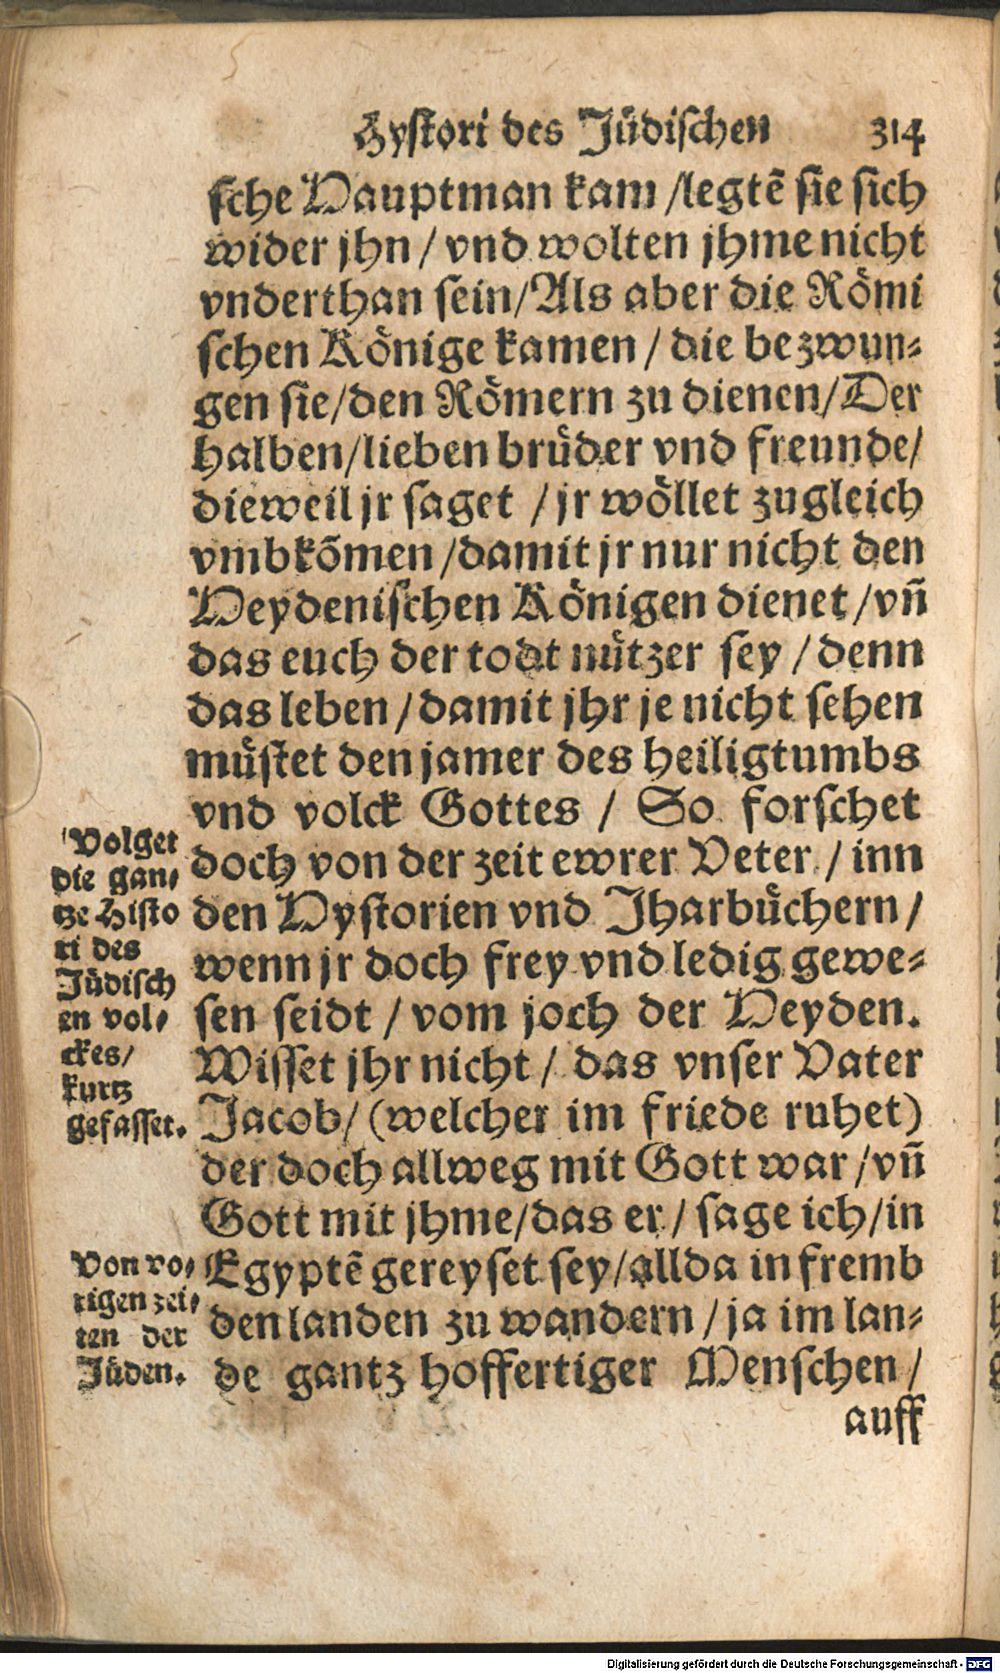 Hystori des Jüdischen 314
sche Hauptman kam / legtẽ sie sich
wider jhn / vnd wolten jhme nicht
vnderthan sein / Als aber die Römi
schen Könige kamen / die bezwun-
gen sie / den Römern zu dienen / Der
halben / lieben brüder vnd freunde /
dieweil jr saget / jr wöllet zugleich
vmbkõmen / damit jr nur nicht den
Heydenischen Königen dienet / vñ
das euch der todt nützer sey / denn
das leben / damit jhr je nicht sehen
müstet den jamer des heiligtumbs
vnd volck Gottes / So forschet
doch von der zeit ewrer Veter / inn
den Hystorien vnd Jharbüchern /
wenn jr doch frey vnd ledig gewe-
sen seidt / vom joch der Heyden.
Wisset jhr nicht / das vnser Vater
Jacob / (welcher im friede ruhet)
der doch allweg mit Gott war / vñ
Gott mit jhme / das er / sage ich / in
Egyptẽ gereyset sey / allda in fremb
den landen zu wandern / ja im lan-
de gantz hoffertiger Menschen /
auff
Volget
die gan-
tze Histo
ri des
Jüdisch
en vol-
ckes /
kurtz
gefasset.
Von vo-
rigen zei-
ten der
Jüden.
Digitalisierung gefördert durch die Deutsche Forschungsgemeinschaft - DFG